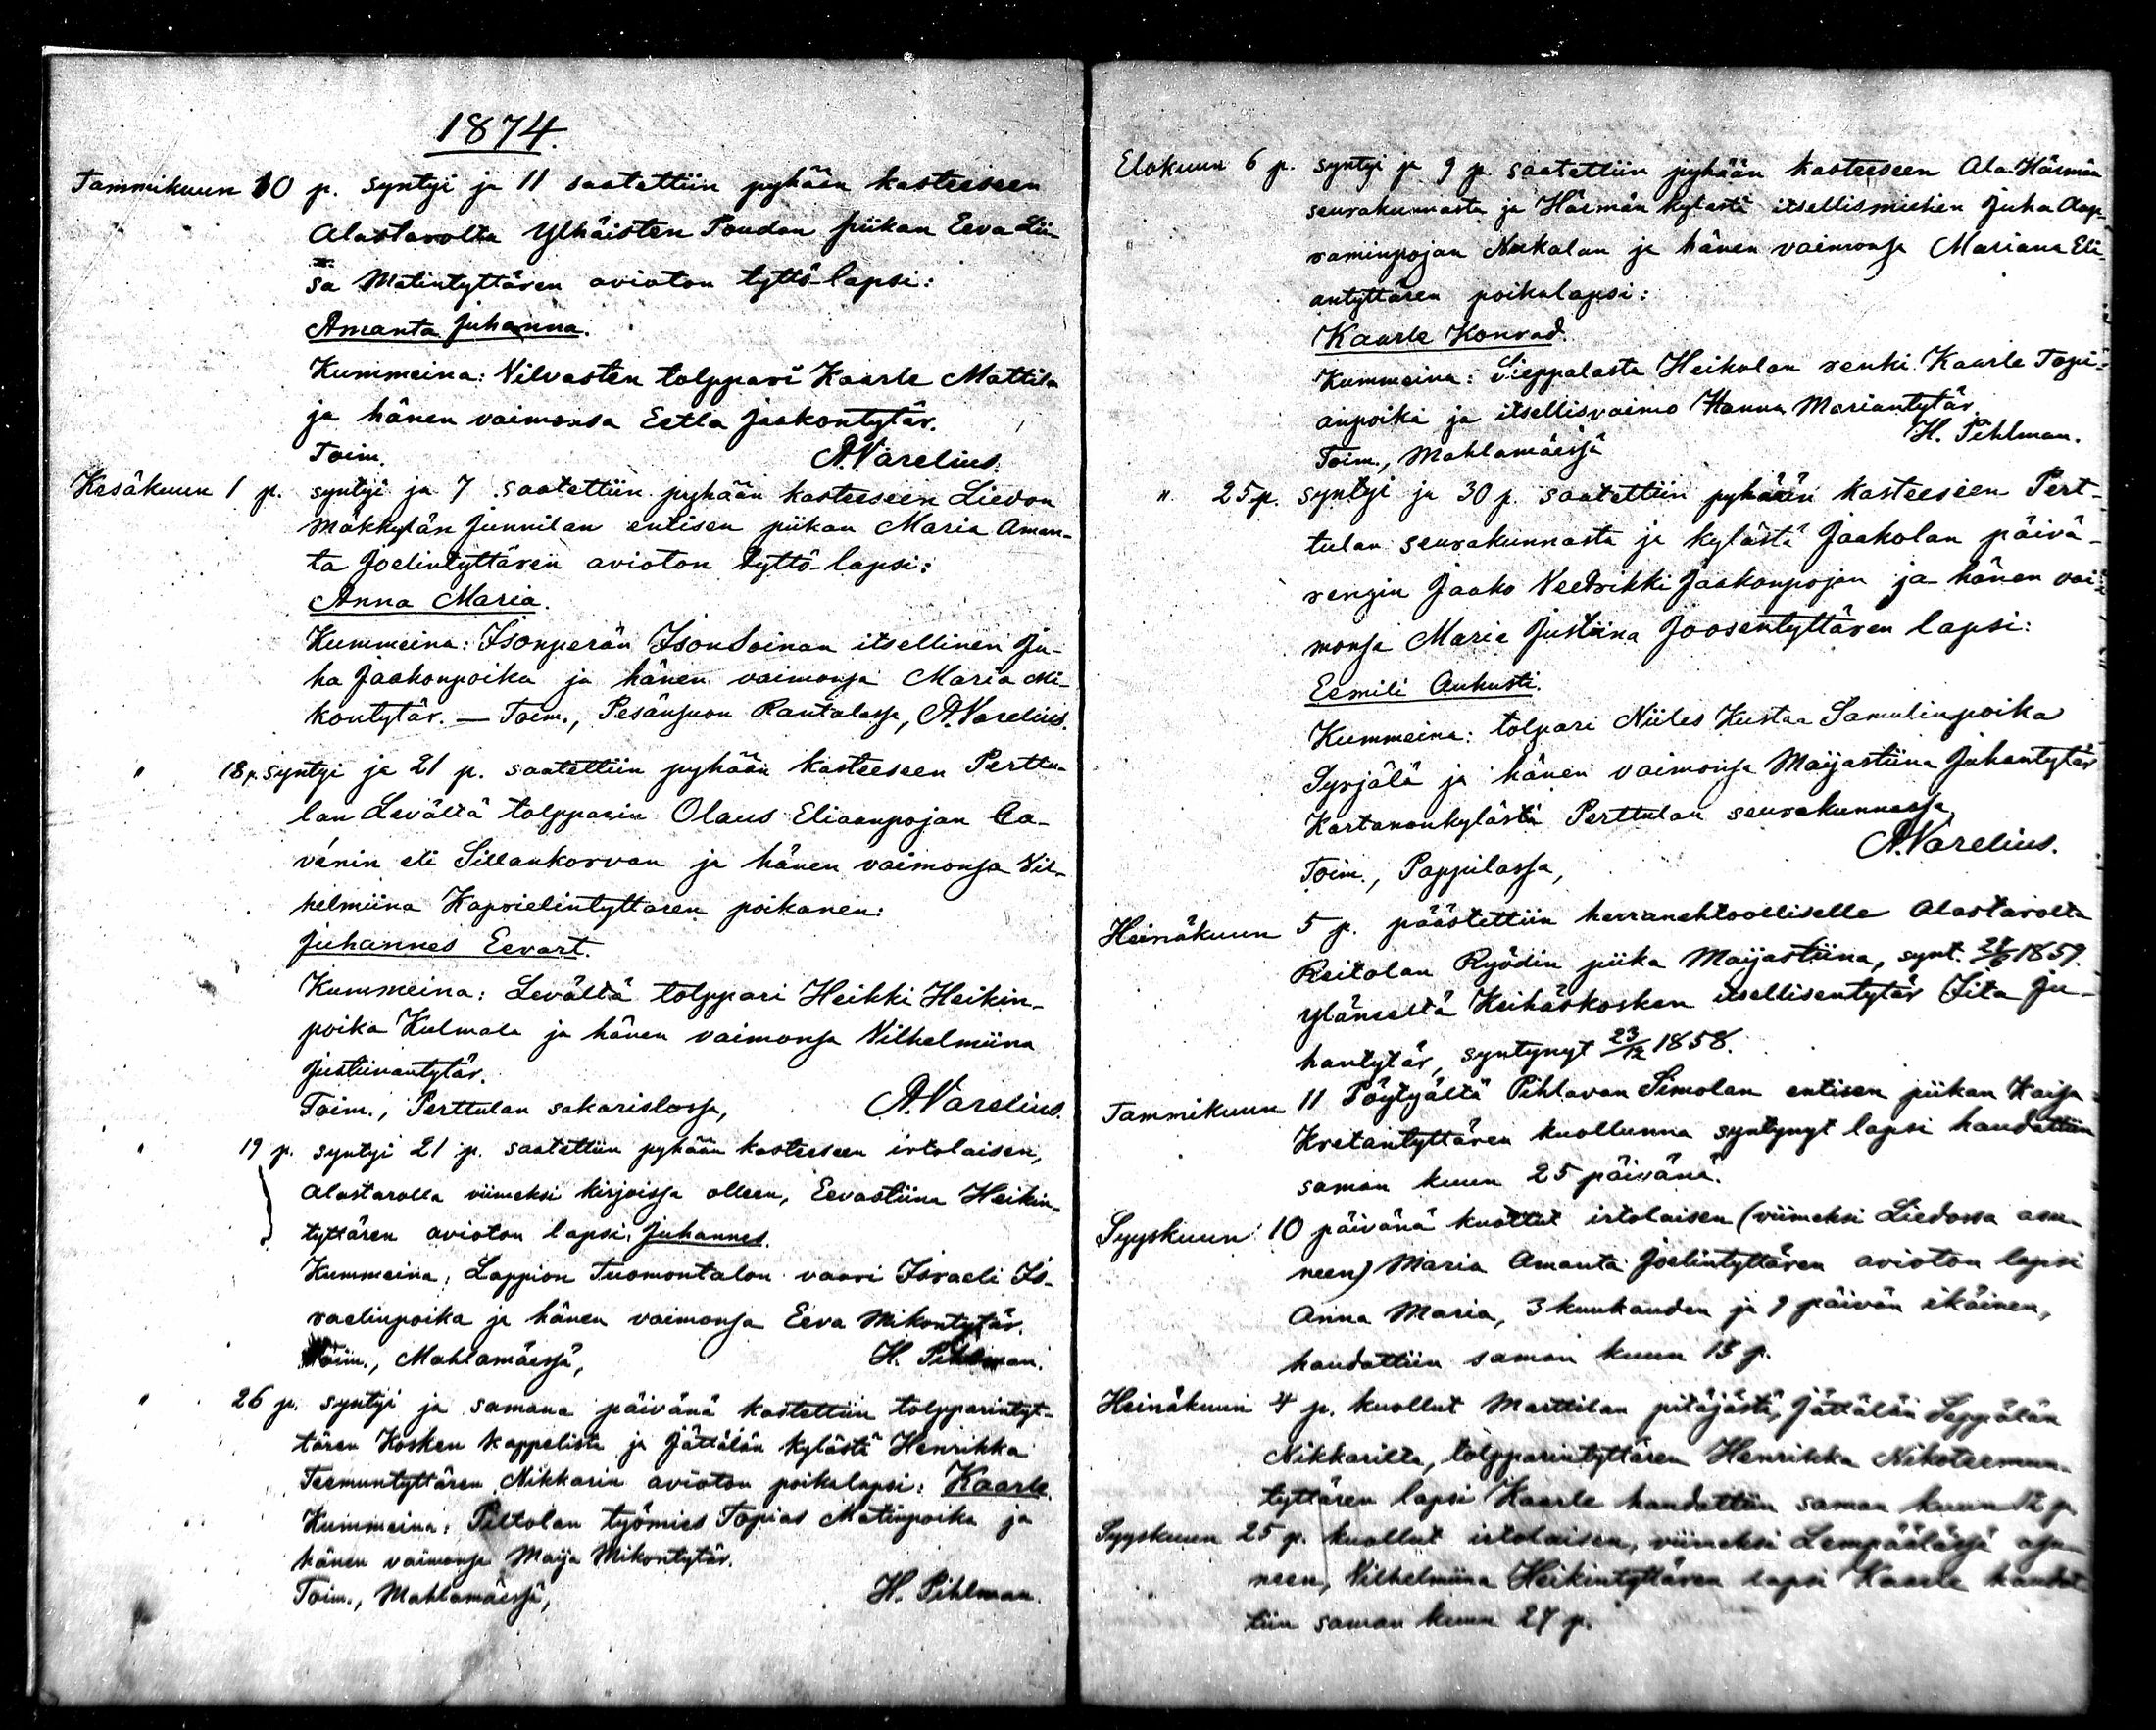 1874.
Tammikuun 10 p. syntyi ja 11 saatettiin pyhään kasteeseen
Alastarolta Ylhäisten Poudan piikan Eeva Lii-
sa Matintyttären avioton tyttö-lapsi:
Amanta Juhanna.
Kummeina: Vilvasten tolppari Kaarle Mattila
ja hänen vaimonsa Eetla Jaakontytär.
Toim. A. Varelius.
Kesäkuun 1 p. syntyi ja 7 saatettiin pyhään kasteeseen Liedon
Mäkkylän Junnilan entisen piikan Maria Aman-
ta Joelintyttären avioton tyttö-lapsi:
Anna Maria.
Kummeina: Isonperän Isonsoinan itsellinen Ju-
ha Jaakonpoika ja hänen vaimonsa Maria Mi-
kontytär. — Toim., Pesänsuon Rantalassa, A. Varelius.
" 18 p. syntyi ja 21 p. saatettiin pyhään kasteeseen Perttu-
lan Levältä tolpparin Olaus Eliaanpojan
venin eli Sillankorvan ja hänen vaimonsa Vil-
helmiina Kaprielintyttaren poikanen:
Juhannes Eevart.
Kummeina: Levältä tolppari Heikki Heikin-
poika Kulmala ja hänen vaimonsa Vilhelmiina
Justiinantytär.
Toim., Perttulan sakaristossa, A. Varelius.
" 19 p. syntyi 21 p. saatettiin pyhään kasteeseen irtolaisen,
Alastarolla viimeksi kirjoissa olleen, Eevastiina Heikin-
tyttären avioton lapsi, Juhannes.
Kummeina: Lappion Tuomontalon vaari Israeli Is-
raelinpoika ja hänen vaimonsa Eeva Mikontytär.
Toim., Mahlamäessä, H. Pihlman.
" 26 p. syntyi ja samana päivänä kastettiin tolpparintyt-
tären Kosken kappelista ja Jättälän kylästä Henrikka
Teemuntyttären Nikkarin avioton poikalapsi: Kaarle.
Kummeina: Peltolan työmies Topias Matinpoika ja
hänen vaimonsa Maija Mikontytär.
Toim., Mahlamäessä, H. Pihlman.
Elokuun 6 p. syntyi ja 9 p. saatettiin pyhään kasteeseen Ala-Härmän
seurakunnasta ja Härmän kylästä itsellismiehen Juha Aap-
raminpojan Nukalan ja hänen vaimonsa Mariana Eli-
antyttären poikalapsi:
Kaarle Konrad.
Kummeina: Lieppalasta Heikolan renki Kaarle Topi-
anpoika ja itsellisvaimo Hanna Mariantytär.
Toim., Mahlamäessä H. Pihlman.
" 25 p. syntyi ja 30 p. saatettiin pyhään kasteeseen Pert-
tulan seurakunnasta ja kylästä Jaakolan päivä-
rengin Jaako Veetrikki Jaakonpojan ja hänen vai-
monsa Maria Justiina Joosentyttären lapsi:
Eemili Aukusti.
Kummeina: tolpari Niiles Kustaa Samulinpoika
Syrjälä ja hänen vaimonsa Maijastiina Juhantytär
Kartanonkylästä Perttulan seurakunnassa
Toim., Pappilassa, A. Varelius.
Heinäkuun 5 p. päästettiin herranehtoolliselle Alastarolta
Reitolan Ryödin piika Maijastiina, synt. 1859.
Yläneeltä Keihäskosken itsellisentytär Iita Ju-
hantytär, syntynyt 23/12 1858.
Tammikuun 11 Pöytyältä Pihlavan Simolan entisen piikan Kaisa
Kretantyttären kuollunna syntynyt lapsi haudattiin
saman kuun 25 päivänä.
Syyskuun 10 päivänä kuollut irtolaisen (viimeksi Liedossa asu-
neen) Maria Amanta Joelintyttären avioton lapsi
Anna Maria, 3 kuukauden ja 9 päivän ikäinen,
haudattiin saman kuun 15 p.
Heinäkuun 4 p. kuollut Marttilan pitäjästä, Jättälän Seppälän
Nikkarilta, tolpparintyttären Henrikka Nikoteemun-
tyttären lapsi Kaarle haudattiin saman kuun 12 p.
Syyskuun 25 p. kuollut irtolaisen, viimeksi Lempäälässä asu-
neen, Vilhelmiina Heikintyttären lapsi Kaarle haudat-
tiin saman kuun 27 p.